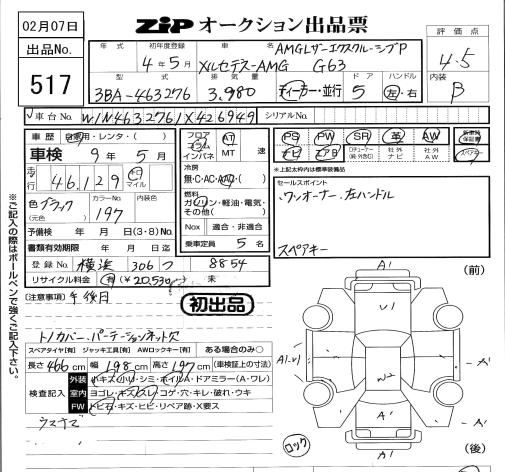 02月07日
ZIP オークション出品票
出品No.
517
年式
初年度登録
4年5月
車名
AMGレザーエクスクルーシブP
メルセデスーAMG G63
評価点
4.5
内装
B
型式
3BA-463276
排気量
3,980
ドア
5
ハンドル
左・右
ディーラー・並行
車台No.
W1N4632761X426949
シリアルNo.
車歴 自家用・レンタ・( )
車検 9年5月
走行 46,129 キロ マイル
色 ブラック
(元色)
カラーNo.
197
内装色
予備検 年 月 日(3・8)No.
書類有効期限 年 月 日迄
登録No. 横浜 306 つ 8854
リサイクル料金 有(¥20,530) 未
フロア
コラム
インパネ
AT
MT 速
冷房
無・C・AC・AAC・( )
燃料
ガソリン・軽油・電気・
その他( )
Nox 適合・非適合
乗車定員 5 名
PS PW SR 革 AW
ナビ エアB
社外ナビ 社外AW
新車時保証書
スペアキー
*上記太枠内は標準装備品
セールスポイント
ワンオーナー、左ハンドル
スペアキー
※ご記入の際はボールペンで強くご記入下さい。
(注意事項) 午後月
初出品
トノカバー、パーテーションネット欠
スペアタイヤ[有] ジャッキ工具[有] AWロックキー[有] ある場合のみ○
長さ 466 cm 幅 198 cm 高さ 197 cm (車検証上の寸法)
検査記入
外装 小キズ・小U・シミ・ホイルA・ドアミラー(A・ワレ)
室内 ヨゴレ・キズ・スレ・コゲ・穴・キレ・破れ・ウキ
FW トビ石・キズ・ヒビ・リペア跡・X要ス
ウスキズ
(前)
A1
U1
A1・U1
W2
A1
A1
(後)
ロック